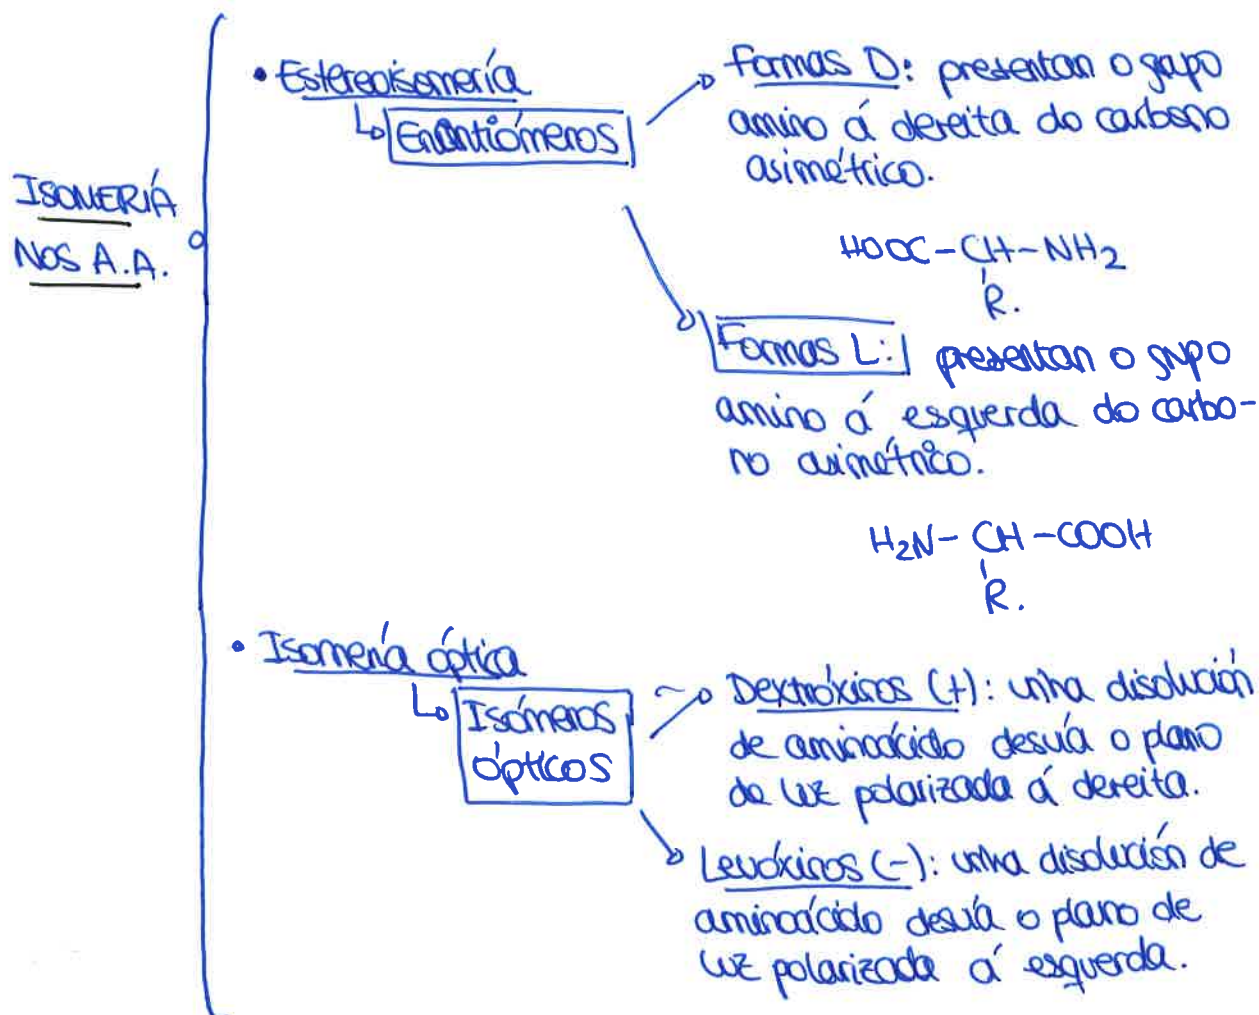 ISOMERÍA
NOS A.A.
• Estereoisomería
Enantiómeros
Formas D: presentan o grupo
amino á dereita do carbono
asimétrico.
HOOC-CH-NH2
R.
Formas L: presentan o grupo
amino á esquerda do carbo-
no asimétrico.
H2N- CH -COOH
R.
• Isomería óptica
Isómeros
ópticos
Dextróxiros (+): unha disolución
de aminoácido desvía o plano
de luz polarizada á dereita.
Levóxiros (-): unha disolución de
aminoácido desvía o plano de
luz polarizada á esquerda.